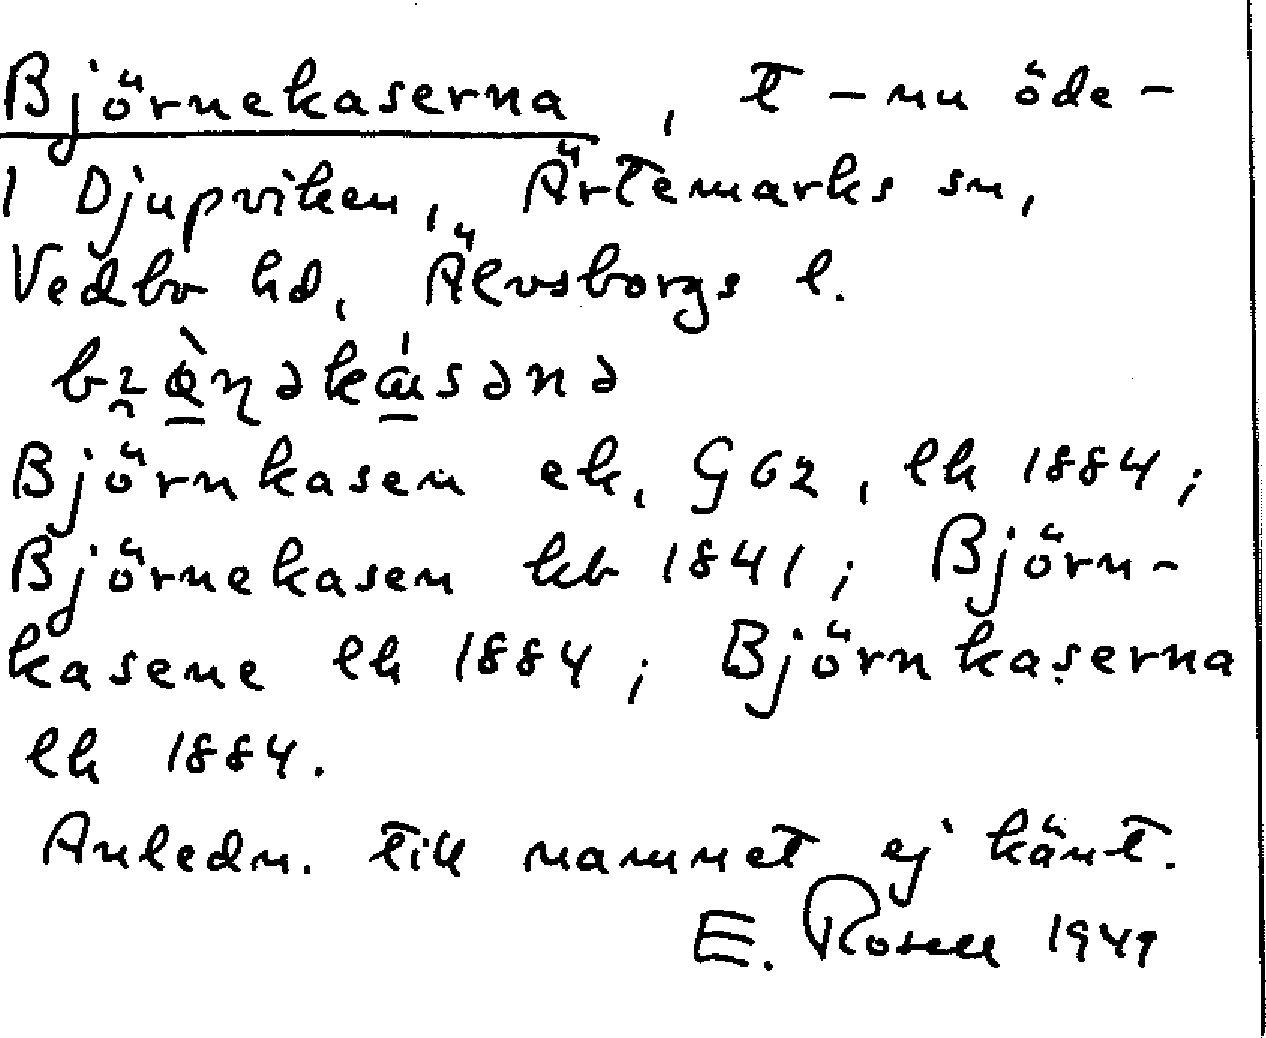 Björnekaserna, t – nu öde –
i Djupviken, Ärtemarks sn,
Vedbo hd, Älvsborgs l.
Björnkasen ek, G62, lk 1884;
Björnekasen kb 1841; Björn-
kasene lk 1884; Björnkaserna
lk 1884.
Anledn. till namnet ej känt.
E. Rosell 1941